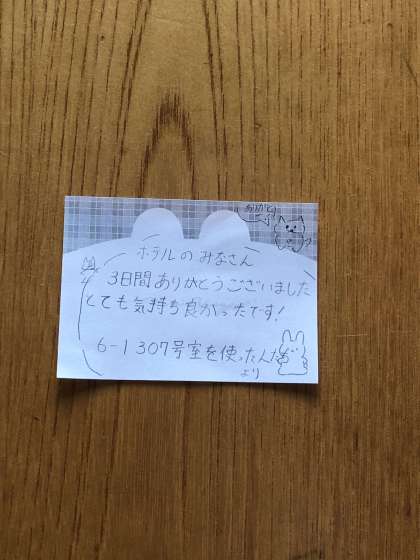 ありがとう
ホテルのみなさん
3日間ありがとうございました
とても気持ち良かったです!
6-1 307号室を使った人たち
より